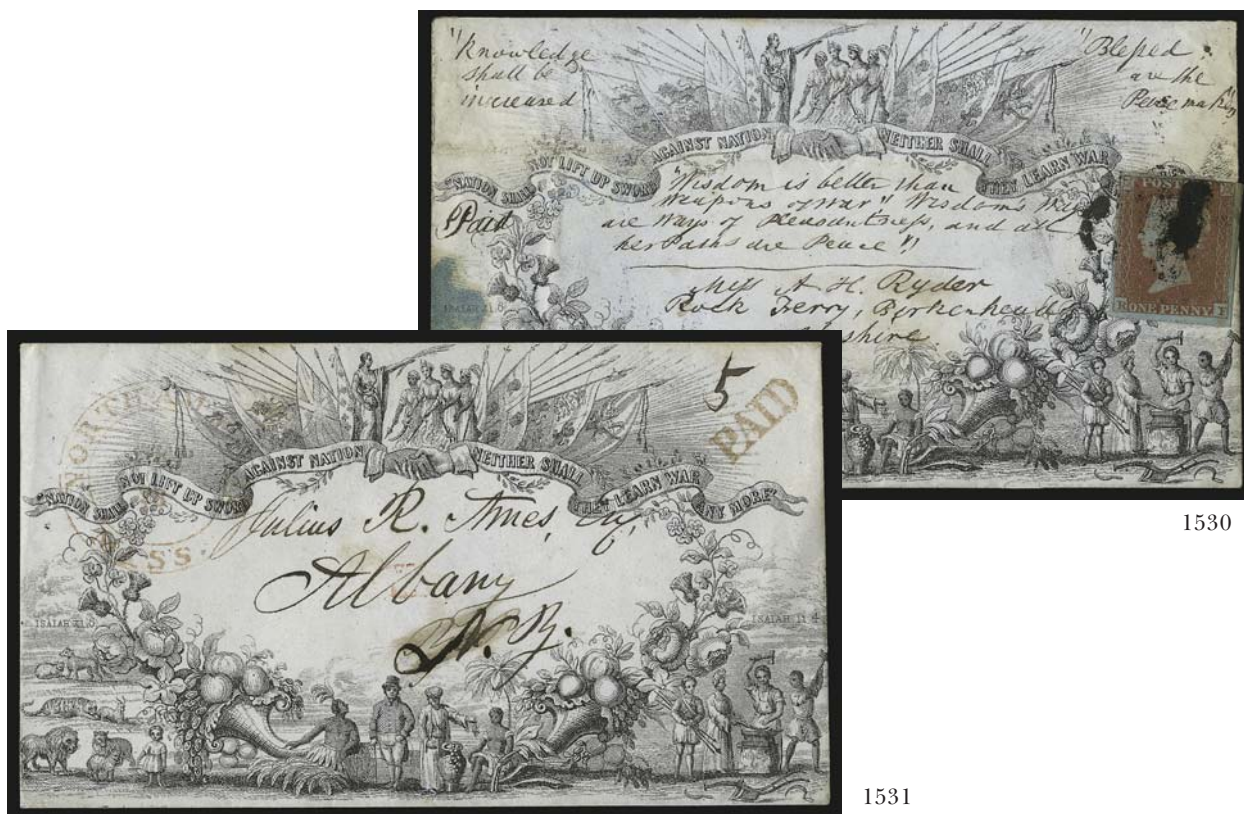 "Knowledge
shall be
increased
"Blessed
are the
Peace makers"
"NATION SHALL NOT LIFT UP SWORD AGAINST NATION NEITHER SHALL THEY LEARN WAR
Paid
"Wisdom is better than
weapons of war" Wisdom's
are ways of Pleasantness, and all
her Paths are Peace"!
POSTAGE
ONE PENNY
Miss A H. Ryder
Rock Ferry, Birkenhead
shire
1530
5
PAID
MASS.
"NATION SHALL NOT LIFT UP SWORD AGAINST NATION NEITHER SHALL THEY LEARN WAR ANY MORE"
Julius R. Ames, Esq,
Albany
N. Y.
ISAIAH 11.6
ISAIAH 11.4
1531